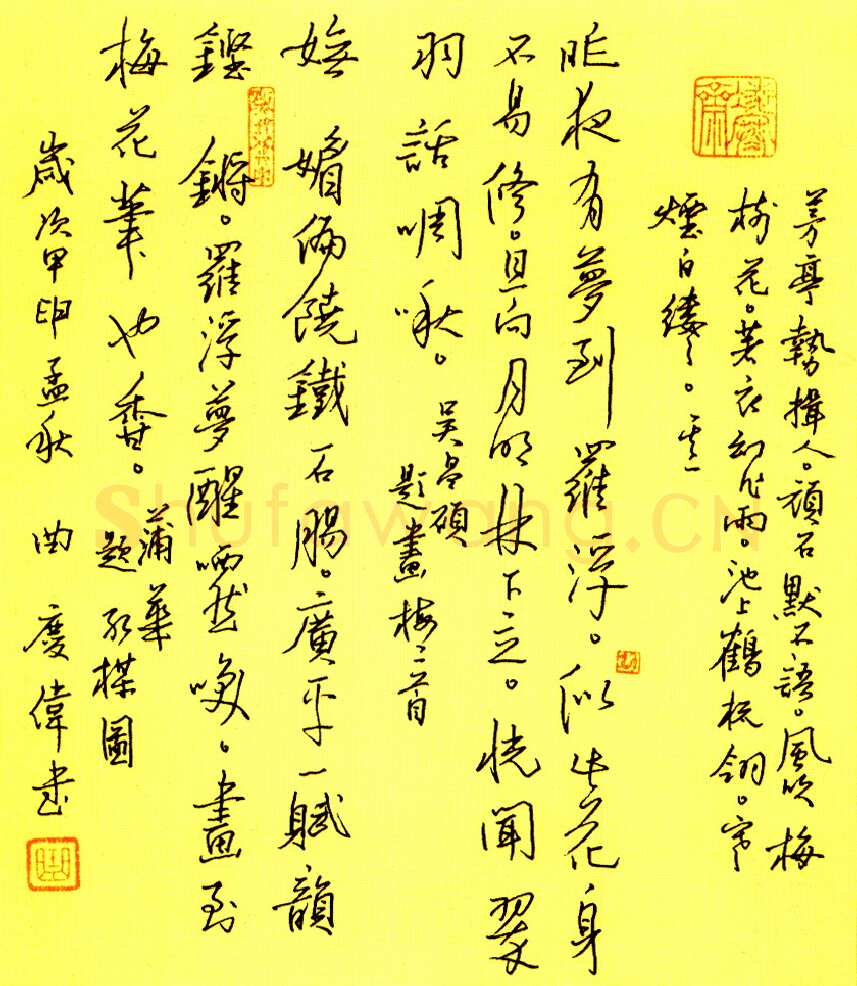 茅亭勢揖人。頑石默不語。風吹梅
樹花。著衣幻作雨。池上鶴梳翎。寒
煙白縷々。其一
昨夜有夢到羅浮。似此花身
不易修。且向月明林下立。恍聞翠
羽話啁啾。
吳昌碩
題畫梅二首
嫵媚偏饒鐵石腸。廣平一賦韻
鏗鏘。羅浮夢醒哂然喚。畫到
梅花筆也香。
蒲華
題紅楳圖
歲次甲申孟秋 曲慶偉書
Shufawang.CN